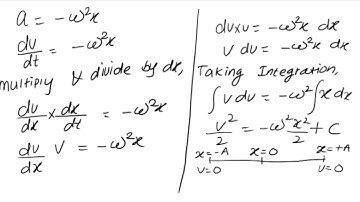 a = -ω²x
dv/dt = -ω²x
multiply & divide by dx,
dv/dx × dx/dt = -ω²x
dv/dx V = -ω²x
dv×v = -ω²x dx
V dv = -ω²x dx
Taking Integration,
∫v dv = -ω²∫x dx
v²/2 = -ω²x²/2 + C
x=-A x=0 x=+A
v=0 v=0